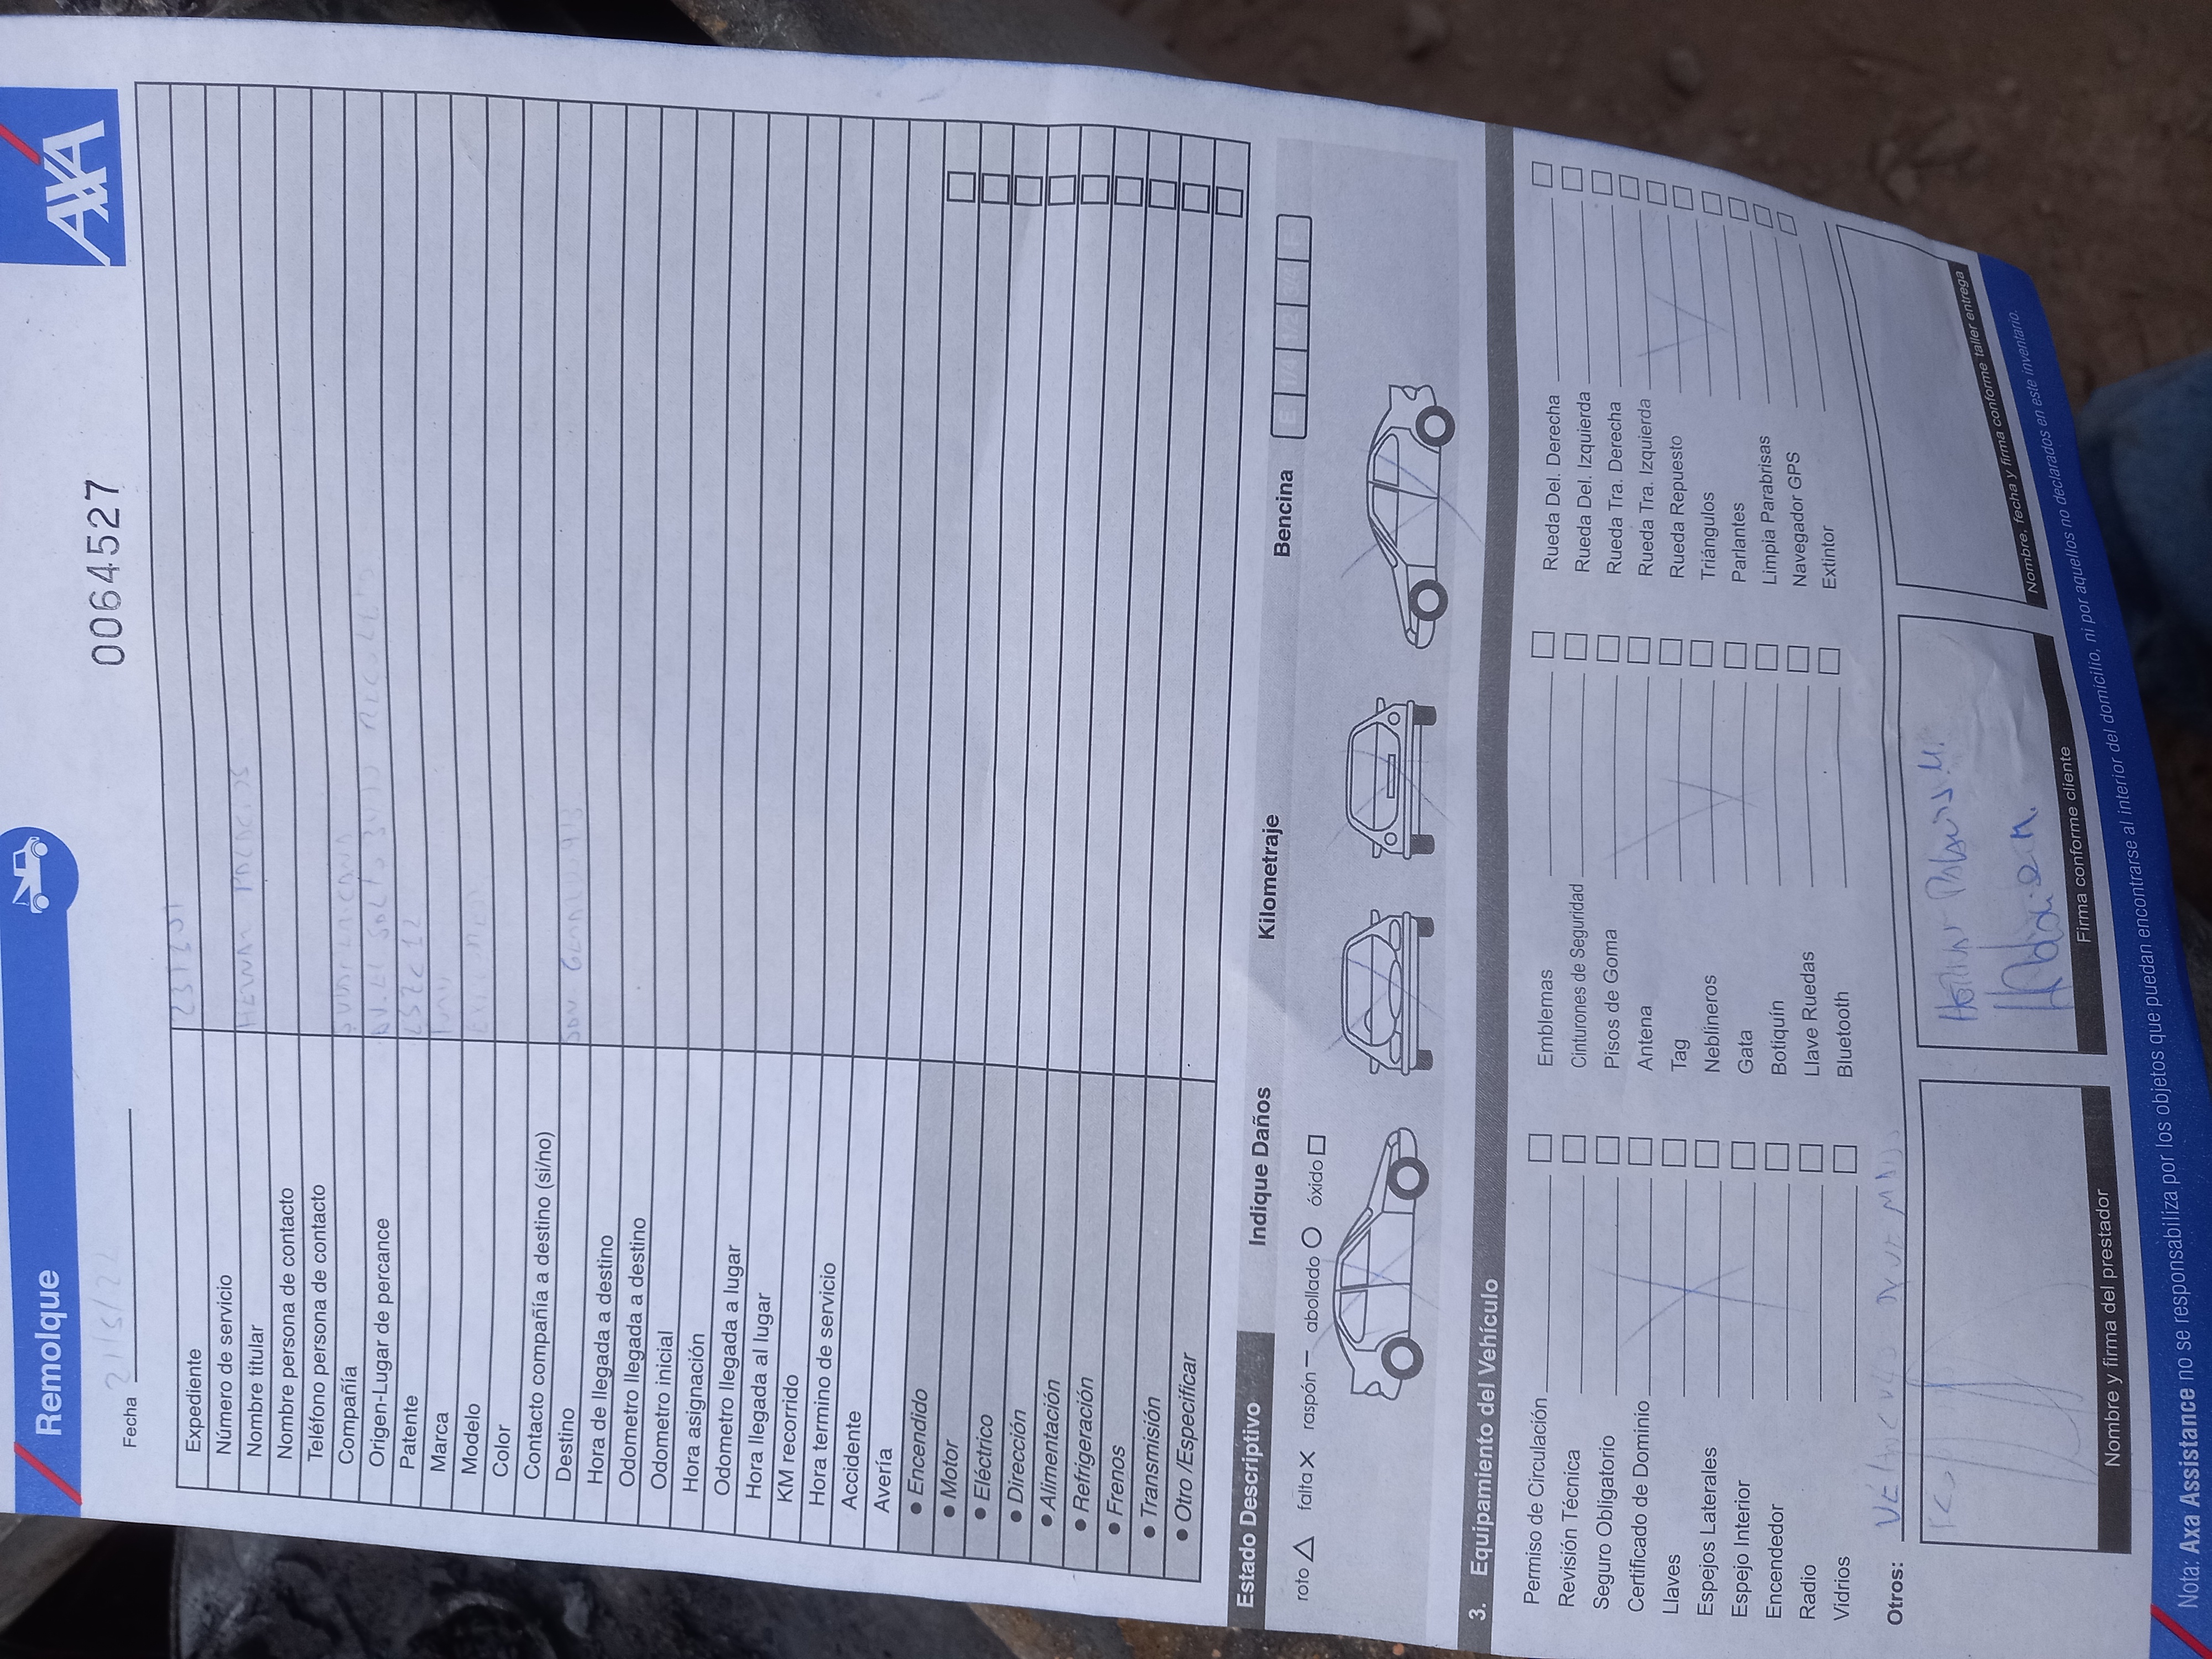 Remolque
AXA
0064527
Fecha
Expediente
Número de servicio
Nombre titular
Nombre persona de contacto
Teléfono persona de contacto
Compañía
Origen-Lugar de percance
Patente
Marca
Modelo
Color
Contacto compañía a destino (si/no)
Destino
Hora de llegada a destino
Odometro llegada a destino
Odometro inicial
Hora asignación
Odometro llegada a lugar
Hora llegada al lugar
KM recorrido
Hora termino de servicio
Accidente
Avería
• Encendido
• Motor
• Eléctrico
• Dirección
• Alimentación
• Refrigeración
• Frenos
• Transmisión
• Otro /Especificar
Estado Descriptivo Indique Daños Kilometraje Bencina
E 1/4 1/2 3/4 F
roto falta raspón abollado óxido
3. Equipamiento del Vehículo
Permiso de Circulación Emblemas Rueda Del. Derecha
Revisión Técnica Cinturones de Seguridad Rueda Del. Izquierda
Seguro Obligatorio Pisos de Goma Rueda Tra. Derecha
Certificado de Dominio Antena Rueda Tra. Izquierda
Llaves Tag Rueda Repuesto
Espejos Laterales Neblineros Triángulos
Espejo Interior Gata Parlantes
Encendedor Botiquín Limpia Parabrisas
Radio Llave Ruedas Navegador GPS
Vidrios Bluetooth Extintor
Otros:
Nombre y firma del prestador
Firma conforme cliente
Nombre, fecha y firma conforme taller entrega
Nota: Axa Assistance no se responsabiliza por los objetos que puedan encontrarse al interior del domicilio, ni por aquellos no declarados en este inventario.